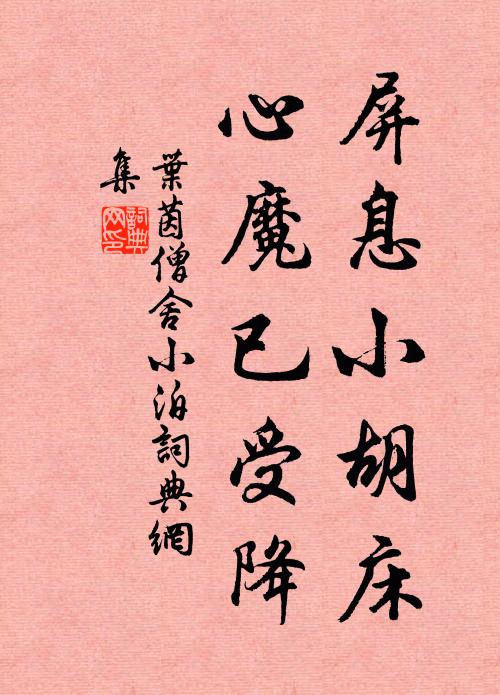 屏息小胡床
心魔已受降
葉茵僧舍小泊詞典網
集
詞典
网印